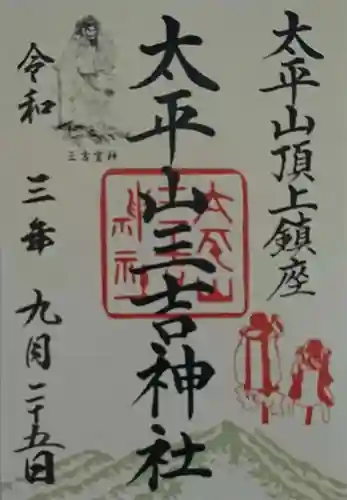 太平山頂上鎮座
太平山三吉神社
三吉霊神
令和三年九月二十五日